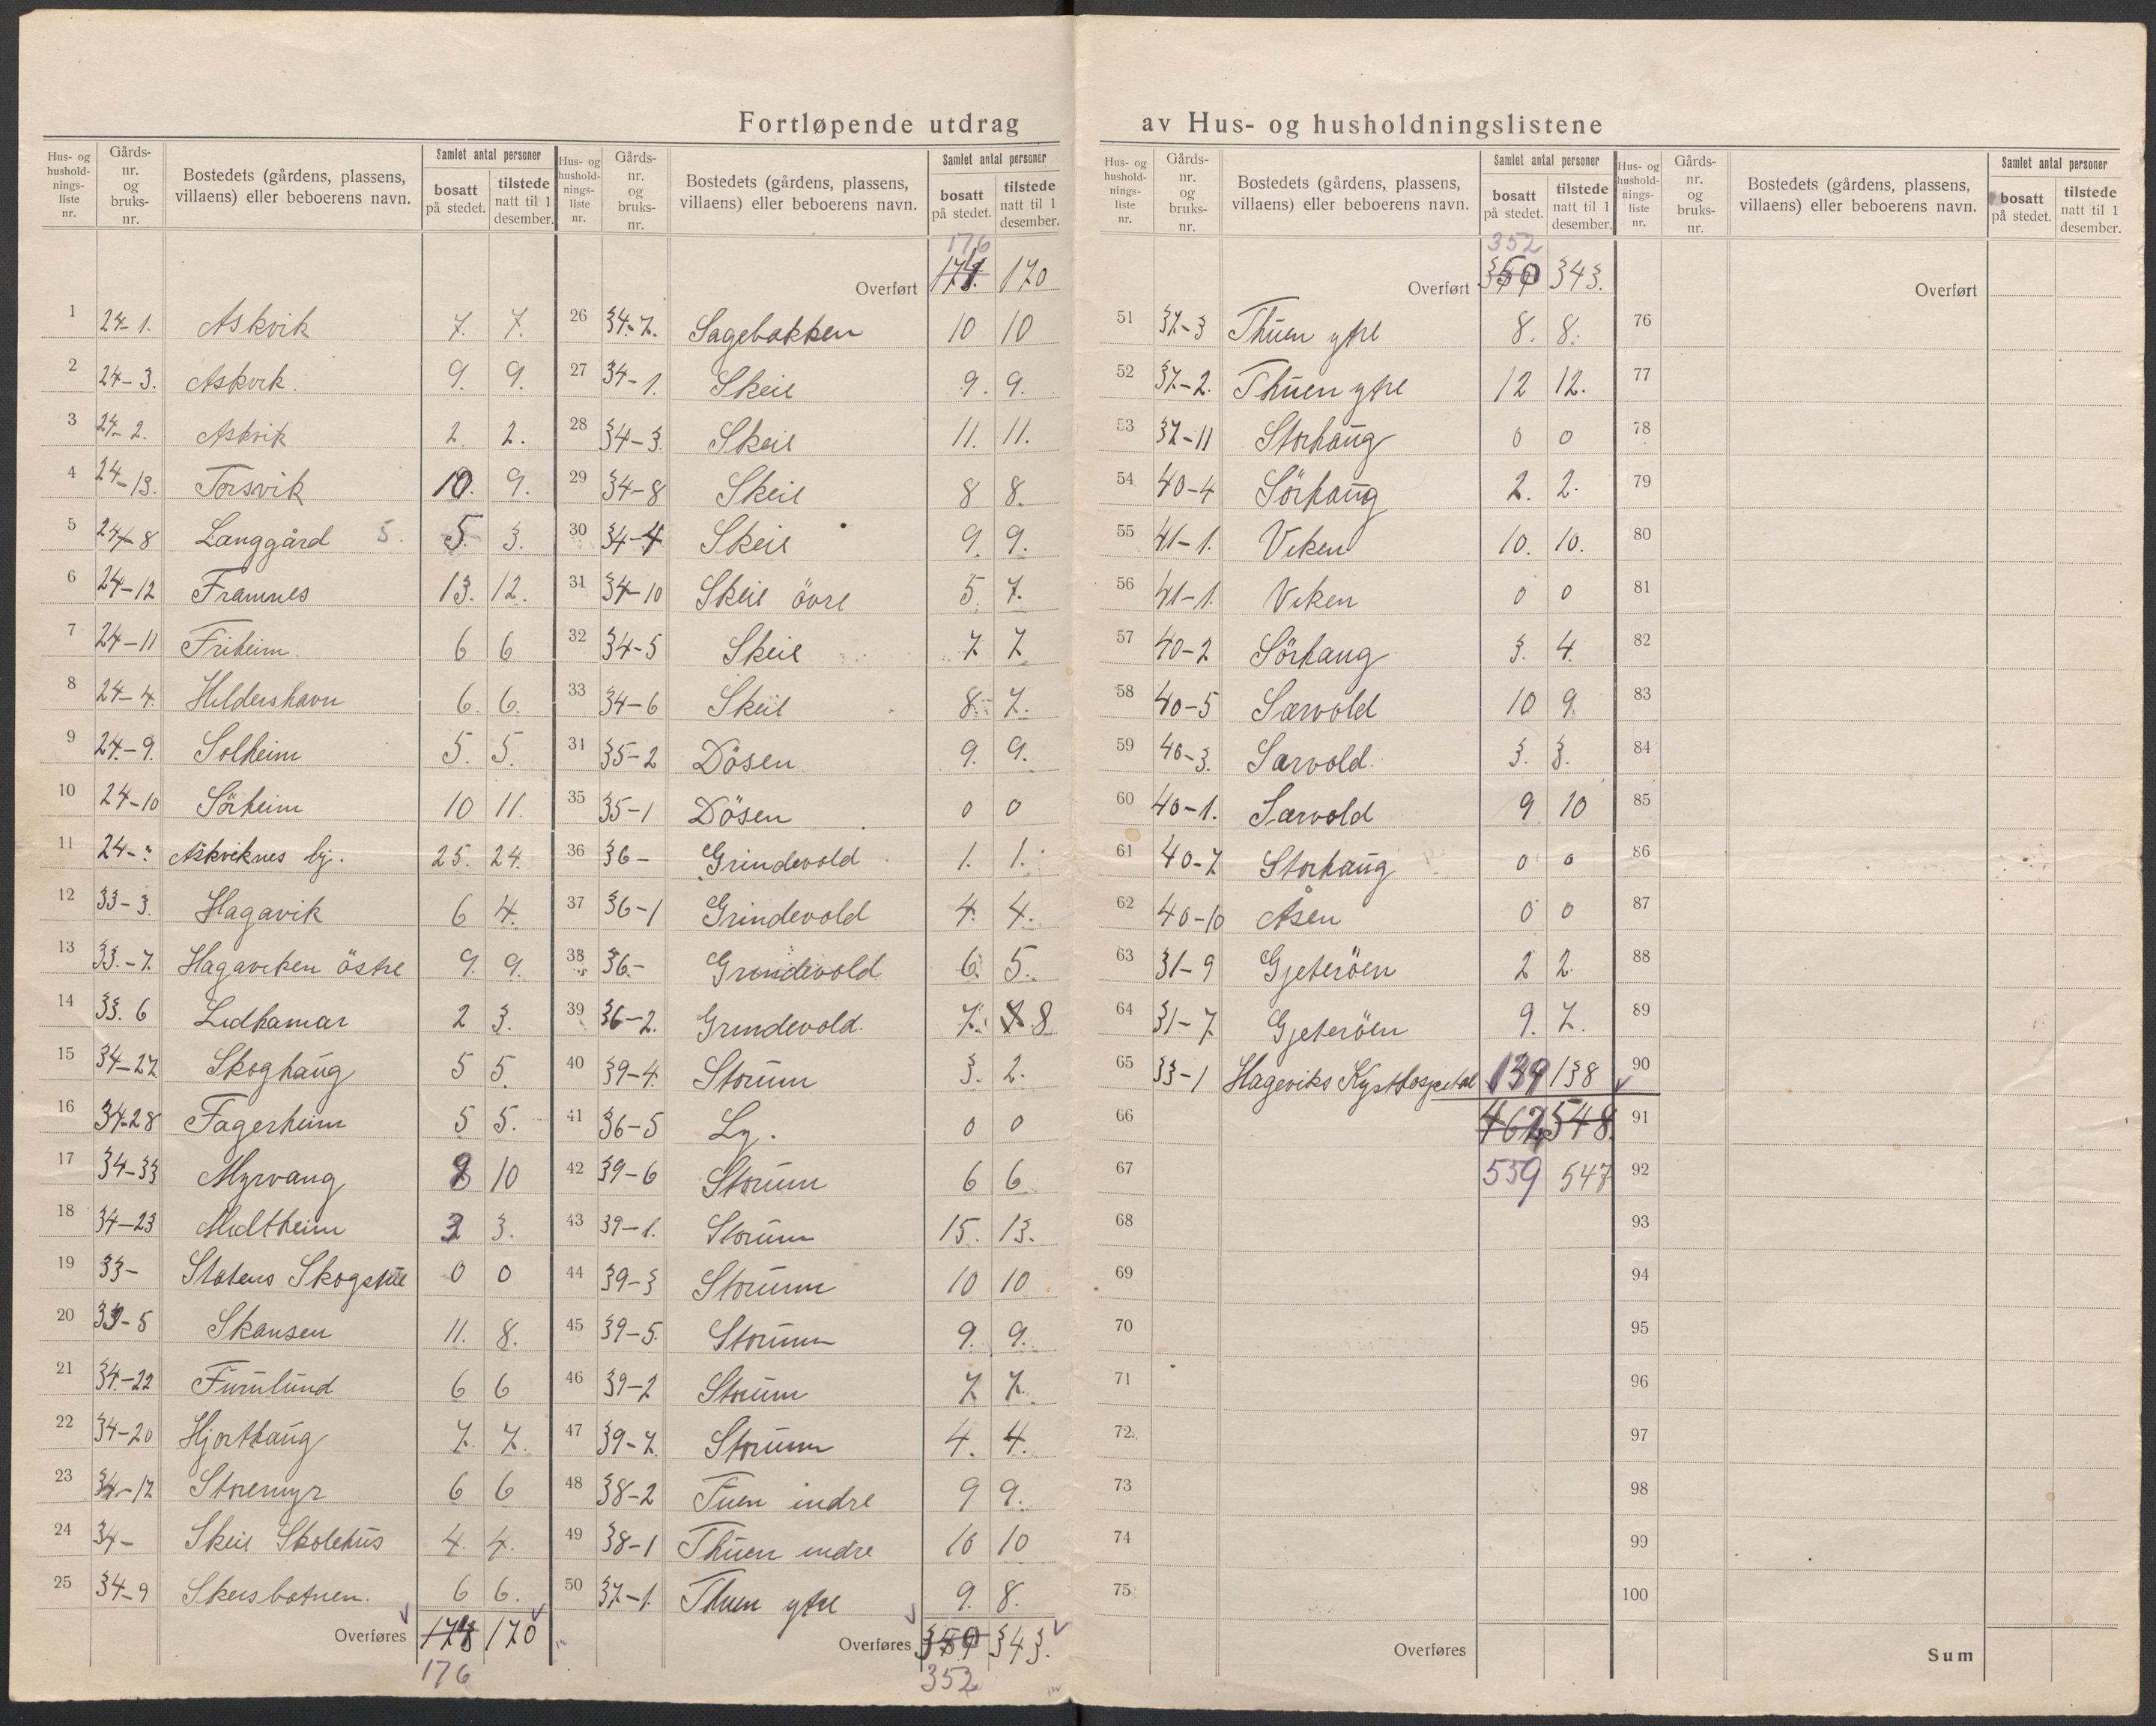 Fortløpende utdrag av Hus- og husholdningslistene
Hus- og husholdnings- liste nr. | Gårds- nr. og bruks- nr. | Bostedets (gårdens, plassens, villaens) eller beboerens navn. | Samlet antal personer | bosatt på stedet. | tilstede natt til 1 desember.
1 24-1. Askvik 7. 7.
2 24-3. Askvik. 9. 9.
3 24-2. Askvik 2. 2.
4 24-13. Torsvik 10. 9.
5 24-8 Langgård 5. 5. 3.
6 24-12 Framnes 13. 12.
7 24-11 Friheim. 6 6
8 24-4. Hildershavn 6. 6.
9 24-9. Solheim 5. 5.
10 24-10 Sörheim 10 11.
11 24-" Askviknes bg. 25. 24.
12 33-3. Hagavik 6 4.
13 33.-7. Hagaviken östre 9. 9.
14 33. 6 Lidhamar 2 3.
15 34-27 Skoghaug 5 5.
16 34-28 Fagerheim 5 5.
17 34-33 Myrvang 8 10
18 34-23 Midtheim 3 3.
19 33- Statens Skogskule 0 0
20 33-5 Skansen 11. 8.
21 34-22 Furulund 6 6
22 34-20 Hjorthaug 7. 7.
23 34-17 Storemyr 6 6
24 34- Skeie Skolehus 4. 4.
25 34-9 Skeisbotnen. 6 6.
Overføres 170
176
Hus- og husholdnings- liste nr. | Gårds- nr. og bruks- nr. | Bostedets (gårdens, plassens, villaens) eller beboerens navn. | Samlet antal personer | bosatt på stedet. | tilstede natt til 1 desember.
176
Overført 171. 170
26 34-7. Sagebakken 10 10
27 34-1. Skeie 9. 9.
28 34-3. Skeie 11. 11.
29 34-8 Skeie 8 8.
30 34-4 Skeie 9. 9.
31 34-10 Skeie övre 5. 7.
32 34-5 Skeie 7 7
33 34-6 Skeie 8. 7.
34 35-2 Dösen 9. 9.
35 35-1 Dösen 0 0
36 36- Grindevold 1. 1.
37 36-1 Grindevold 4. 4.
38 36- Grindevold 6. 5.
39 36-2. Grindevold. 7. 8
40 39-4. Storum 3. 2.
41 36-5 Ly. 0 0
42 39-6 Storum 6 6
43 39-1. Storum 15. 13.
44 39-3 Storum 10 10
45 39-5. Storum 9. 9.
46 39-2 Storum 7. 7.
47 39-7. Storum 4. 4.
48 38-2 Tuen indre 9 9.
49 38-1 Thuen indre 10 10
50 37-1. Thuen ytre 9. 8.
Overføres 350 343.
352
Hus- og husholdnings- liste nr. | Gårds- nr. og bruks- nr. | Bostedets (gårdens, plassens, villaens) eller beboerens navn. | Samlet antal personer | bosatt på stedet. | tilstede natt til 1 desember.
352
Overført 350 343.
51 37-3 Thuen ytre 8. 8.
52 37-2. Thuen ytre 12 12.
53 37-11 Storhaug 0 0
54 40-4 Sörhaug 2. 2.
55 41-1. Viken 10. 10.
56 41-1. Viken 0 0
57 40-2 Sörhaug 3. 4.
58 40-5 Særvold 10 9.
59 40-3. Særvold. 3. 3.
60 40-1. Særvold 9 10
61 40-7 Storhaug 0 0
62 40-10 Åsen 0 0
63 31-9 Gjeteröen 2 2.
64 31-7 Gjeteröen 9. 7.
65 33-1 Hageviks Kysthospital 139 138
66 462 548.
67 559 547
68
69
70
71
72
73
74
75
Overføres
Hus- og husholdnings- liste nr. | Gårds- nr. og bruks- nr. | Bostedets (gårdens, plassens, villaens) eller beboerens navn. | Samlet antal personer | bosatt på stedet. | tilstede natt til 1 desember.
Overført
76
77
78
79
80
81
82
83
84
85
86
87
88
89
90
91
92
93
94
95
96
97
98
99
100
Sum